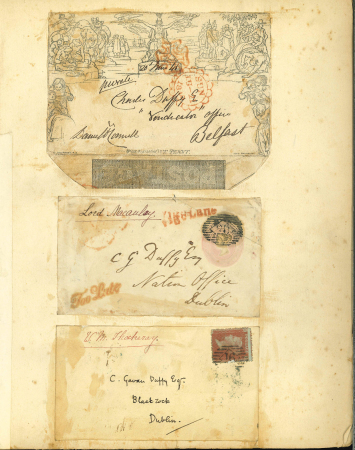 private
Charles Duffy Esq
Vindicator office
Belfast
POSTAGE ONE PENNY
Lord Macaulay
C G Duffy Esq
Nation Office
Dublin
Too Late
W M Thackeray
C. Gavan Duffy Esq.
Blackrock
Dublin